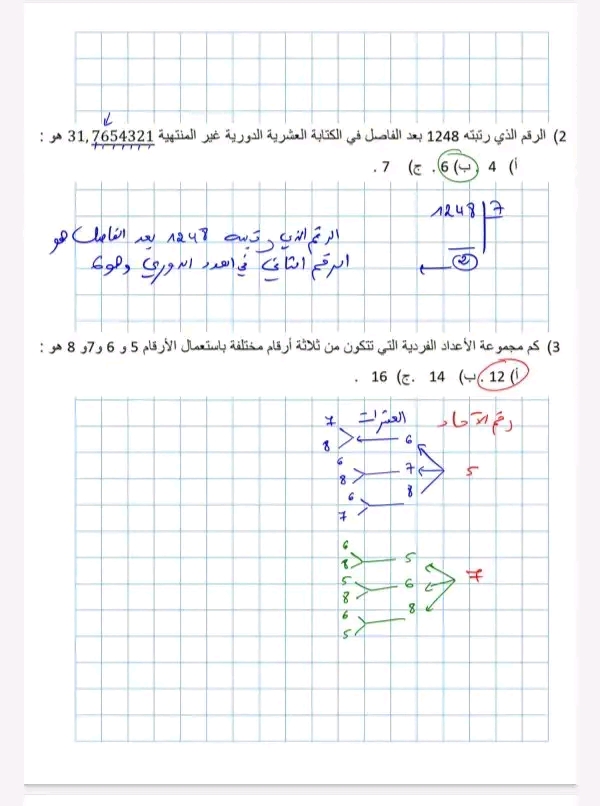 2) الرقم الذي رتبته 1248 بعد الفاصل في الكتابة العشرية الدورية غير المنتهية 31,7654321 هو :
أ) 4 . ب) 6 . ج) 7 .
1248 | 7
2
الرقم الذي رتبته 1248 بعد الفاصل هو
الرقم الثاني في العدد الدوري وهو 6
3) كم مجموعة الأعداد الفردية التي تتكون من ثلاثة أرقام مختلفة باستعمال الأرقام 5 و 6 و7و 8 هو :
أ) 12 . ب) 14 . ج) 16 .
رقم الآحاد العشرات
7
6
8
6
5 7
8
6 8
7
6
5
8
5
7 6
8
6 8
5